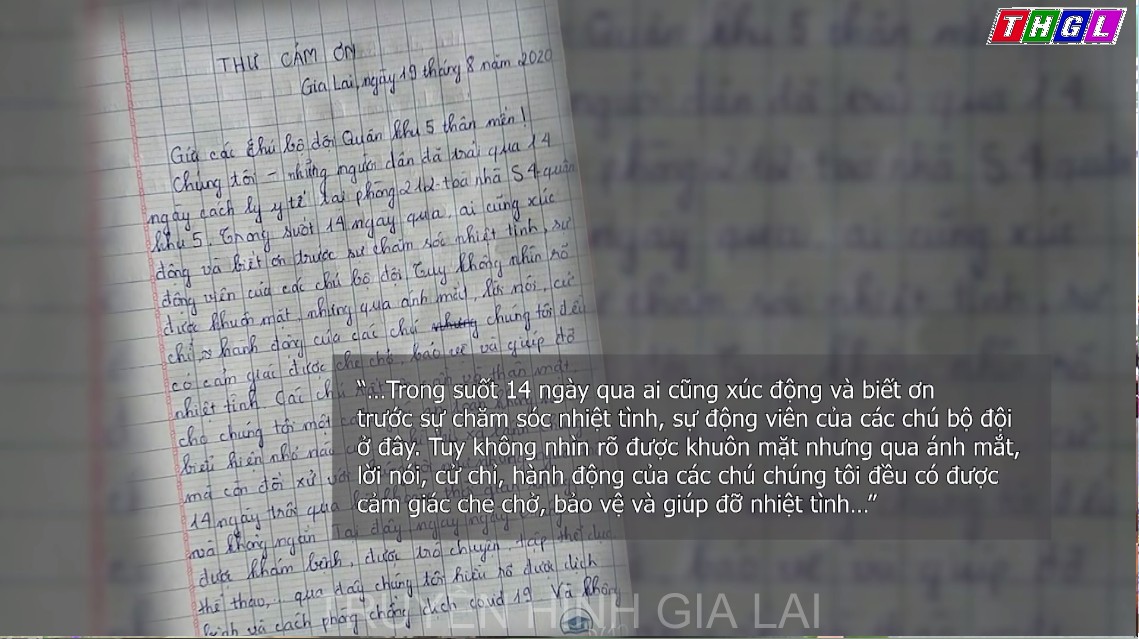 THGL
THƯ CẢM ƠN
Gia Lai, ngày 19 tháng 8 năm 2020
Gửi các chú bộ đội Quân khu 5 thân mến!
Chúng tôi - những người dân đã trải qua 14
ngày cách ly y tế tại phòng 212- toà nhà S4 quân
khu 5. Trong suốt 14 ngày qua, ai cũng xúc
động và biết ơn trước sự chăm sóc nhiệt tình, sự
động viên của các chú bộ đội. Tuy không nhìn rõ
được khuôn mặt, nhưng qua ánh mắt, lời nói, cử
chỉ, hành động của các chú nhưng chúng tôi đều
có cảm giác được che chở, bảo vệ và giúp đỡ
nhiệt tình. Các chú
cho chúng tôi một
biểu hiện nhỏ nào
mà còn đối xử với
14 ngày trôi qua
mà không ngắn. Tại đây ngày ngày
được khám bệnh, được trò chuyện, tập thể dục
thể thao, qua đây chúng tôi hiểu rõ được dịch
bệnh và cách phòng chống dịch covid 19. Và không
“...Trong suốt 14 ngày qua ai cũng xúc động và biết ơn
trước sự chăm sóc nhiệt tình, sự động viên của các chú bộ đội
ở đây. Tuy không nhìn rõ được khuôn mặt nhưng qua ánh mắt,
lời nói, cử chỉ, hành động của các chú chúng tôi đều có được
cảm giác che chở, bảo vệ và giúp đỡ nhiệt tình...”
TRUYỀN HÌNH GIA LAI